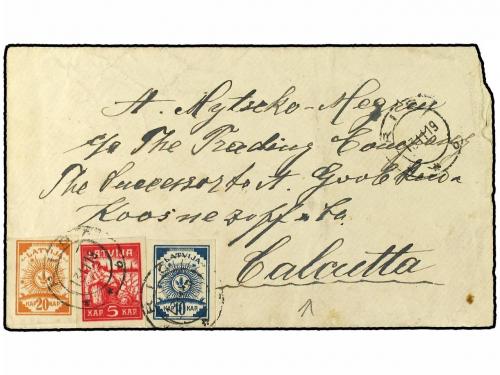 A. Mytscko-Megeen
c/o The Trading Company
The Successor to A. Goobkin-
Koosnezoff & Co.
Calcutta
LATVIJA
20
KAP.
LATVIJA
KAP. 5 KAP.
LATVIJA
KAP. 10 KAP.
RIGA